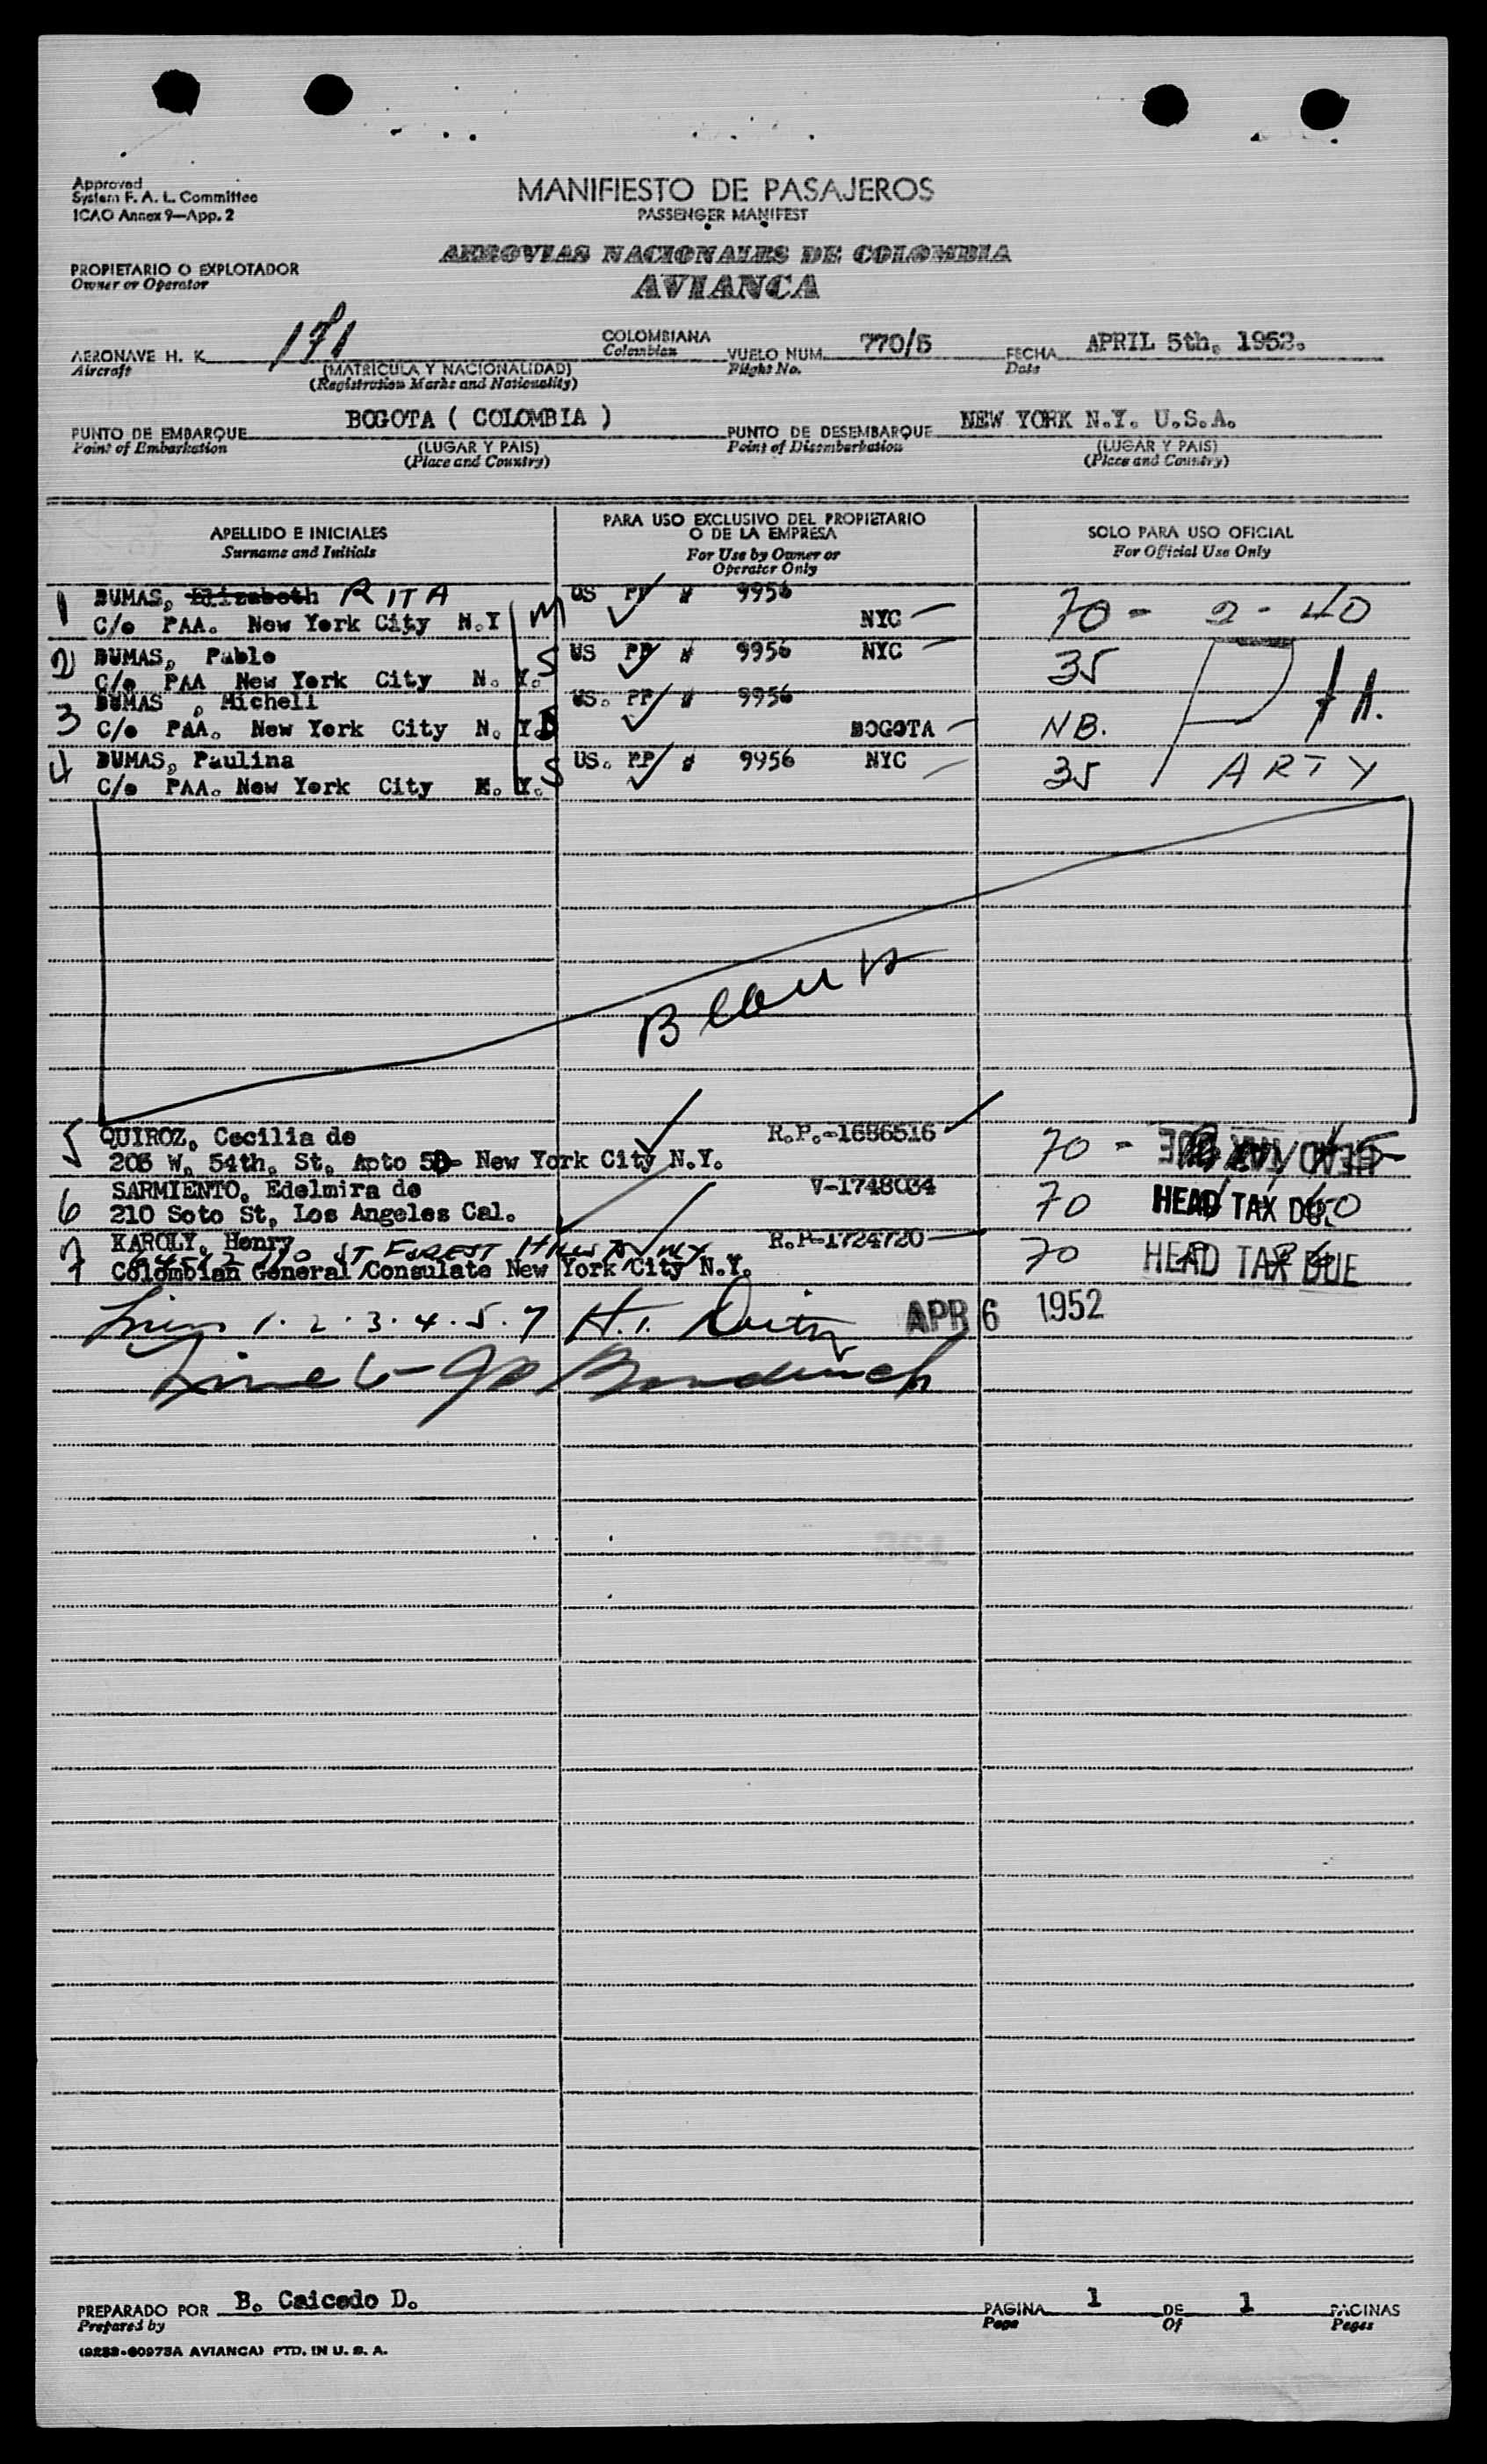 Approved
System F. A. L. Committee
ICAO Annex 9—App. 2
MANIFIESTO DE PASAJEROS
PASSENGER MANIFEST
AEROVIAS NACIONALES DE COLOMBIA
AVIANCA
PROPIETARIO O EXPLOTADOR
Owner or Operator
AERONAVE H. K. 171 COLOMBIANA VUELO NUM. 770/5 FECHA APRIL 5th, 1952.
Aircraft (MATRICULA Y NACIONALIDAD) Colombian Flight No. Date
(Registration Marks and Nationality)
PUNTO DE EMBARQUE BOGOTA ( COLOMBIA ) PUNTO DE DESEMBARQUE NEW YORK N.Y. U.S.A.
Point of Embarkation (LUGAR Y PAIS) Point of Disembarkation (LUGAR Y PAIS)
(Place and Country) (Place and Country)
APELLIDO E INICIALES PARA USO EXCLUSIVO DEL PROPIETARIO O DE LA EMPRESA SOLO PARA USO OFICIAL
Surname and Initials For Use by Owner or Operator Only For Official Use Only
1 DUMAS, Elizabeth RITA M US PP # 9956
C/o PAA. New York City N.Y NYC 70 - 2 - 40
2 DUMAS, Pablo S US PP # 9956 NYC 35
C/o PAA New York City N. Y.
3 DUMAS , Michell US. PP # 9956
C/o PAA. New York City N. Y. BOGOTA NB.
4 DUMAS, Paulina S US. PP # 9956 NYC 35 ARTY
C/o PAA. New York City N. Y.
Blank
5 QUIROZ, Cecilia de R.P.-1686516 70 - HEAD TAX DUE
205 W. 54th. St. Apto 5D- New York City N.Y.
6 SARMIENTO, Edelmira de V-1748034 70 HEAD TAX DUE
210 Soto St, Los Angeles Cal.
7 KAROLY, Henry R.P-1724720 70 HEAD TAX DUE
ST FOREST HILLS NY
Colombian General Consulate New York City N.Y.
Lines 1. 2. 3. 4. 5. 7 APR 6 1952
Line 6
PREPARADO POR B. Caicedo D. PAGINA 1 DE 1 PAGINAS
Prepared by Page Of Pages
AVIANCA) PTD. IN U. S. A.